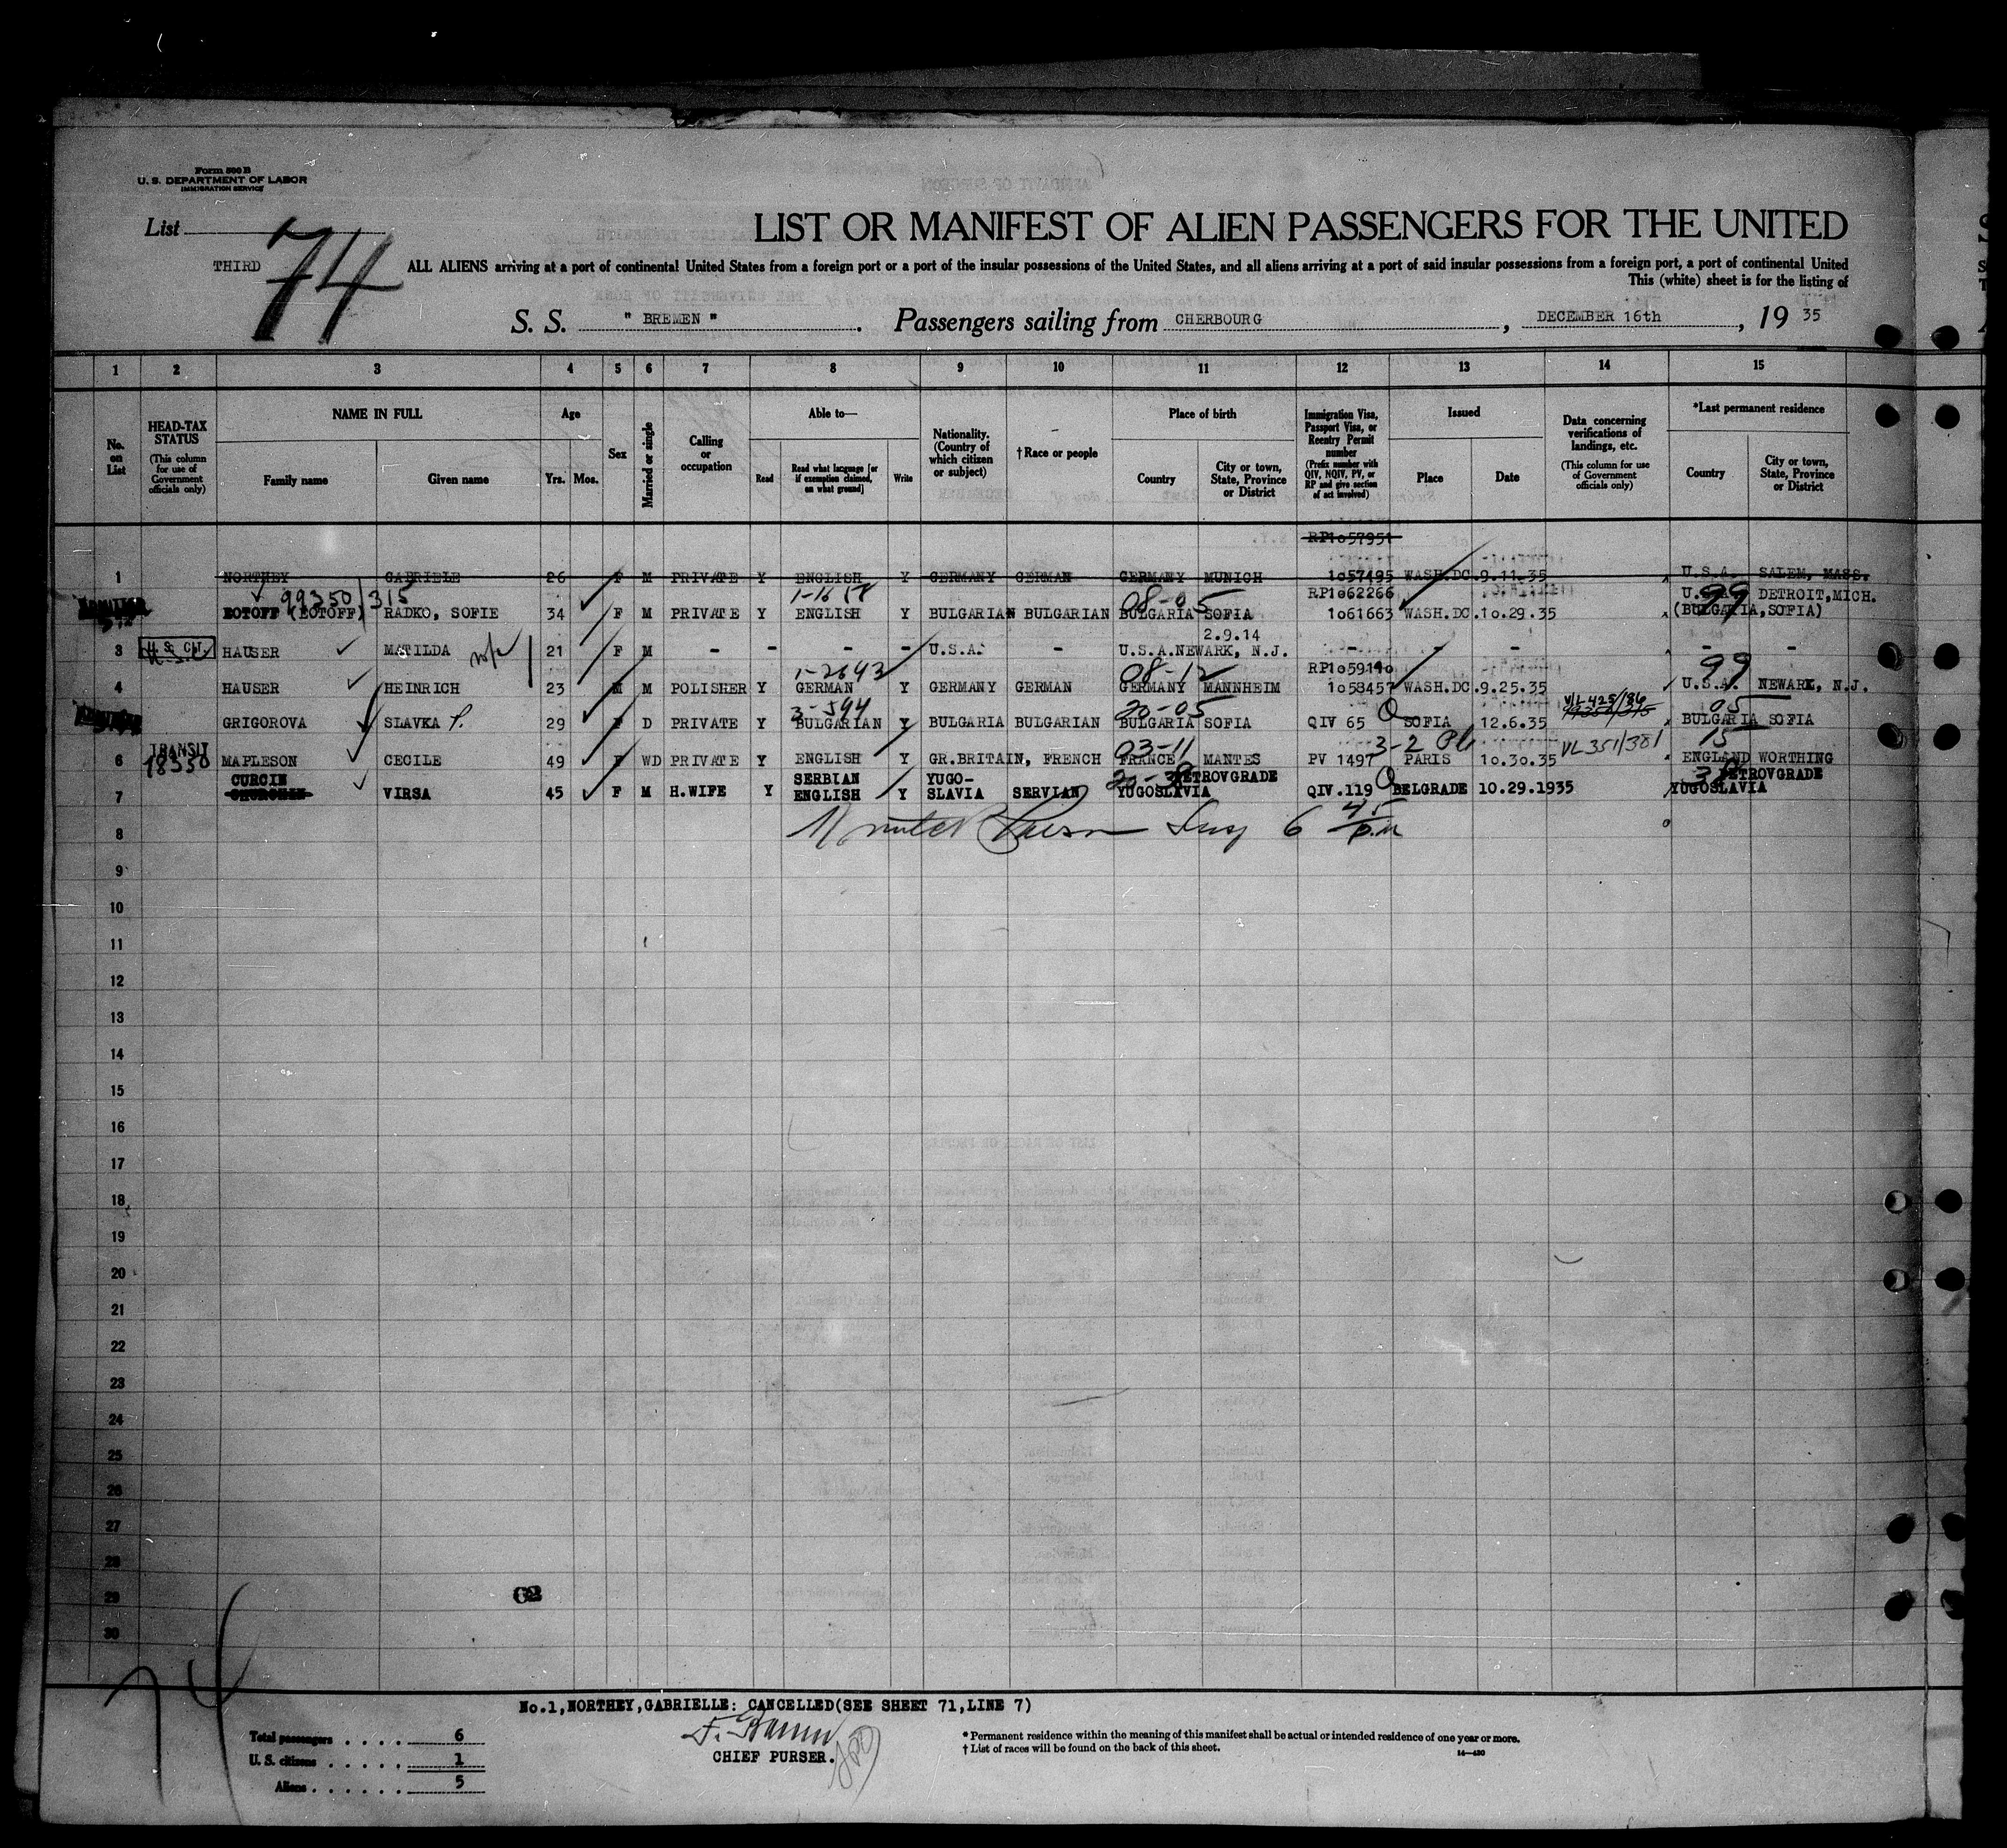 Form 500 B
U. S. DEPARTMENT OF LABOR
IMMIGRATION SERVICE
List 74
THIRD
LIST OR MANIFEST OF ALIEN PASSENGERS FOR THE UNITED
ALL ALIENS arriving at a port of continental United States from a foreign port or a port of the insular possessions of the United States, and all aliens arriving at a port of said insular possessions from a foreign port, a port of continental United
This (white) sheet is for the listing of
S. S. " BREMEN " . Passengers sailing from CHERBOURG , DECEMBER 16th , 19 35
1 2 3 4 5 6 7 8 9 10 11 12 13 14 15
No. on List
HEAD-TAX STATUS (This column for use of Government officials only)
NAME IN FULL
Family name Given name
Age
Yrs. Mos.
Sex
Married or single
Calling or occupation
Able to—
Read Read what language [or if exemption claimed, on what ground] Write
Nationality. (Country of which citizen or subject)
† Race or people
Place of birth
Country City or town, State, Province or District
Immigration Visa, Passport Visa, or Reentry Permit number (Prefix number with QIV, NQIV, PV, or RP and give section of act involved)
Issued
Place Date
Data concerning verifications of landings, etc. (This column for use of Government officials only)
*Last permanent residence
Country City or town, State, Province or District
RP1o57951
1 NORTHEY GABRIELE 26 F M PRIVATE Y ENGLISH Y GERMANY GERMAN GERMANY MUNICH 1o57495 WASH.DC.9.11.35 U.S.A. SALEM, MASS.
99350/315 RP1o62266 U.S.A. DETROIT,MICH.
EOTOFF (EOTOFF) RADKO, SOFIE 34 F M PRIVATE Y ENGLISH Y BULGARIAN BULGARIAN BULGARIA SOFIA 1o61663 WASH.DC.1o.29.35 (BULGARIA,SOFIA)
08-05 99
2.9.14
3 U.S. CIT. HAUSER MATILDA 21 F M - - - - U.S.A. - U.S.A.NEWARK, N.J. - - - - -
1-2643 08-12 RP1o59140 99
4 HAUSER HEINRICH 23 M M POLISHER Y GERMAN Y GERMANY GERMAN GERMANY MANNHEIM 1o58457 WASH.DC.9.25.35 U.S.A. NEWARK, N.J.
3-594 20-05 VL425/186 99350/315 05
GRIGOROVA SLAVKA P. 29 F D PRIVATE Y BULGARIAN Y BULGARIA BULGARIAN BULGARIA SOFIA QIV 65 SOFIA 12.6.35 BULGARIA SOFIA
TRANSIT 18350 03-11 3-2 Pl VL351/381 15
6 MAPLESON CECILE 49 F WD PRIVATE Y ENGLISH Y GR.BRITAIN, FRENCH FRANCE MANTES PV 1497 PARIS 1o.30.35 ENGLAND WORTHING
CURCIN SERBIAN YUGO- 20-38 PETROVGRADE 38 PETROVGRADE
7 VIRSA 45 F M H.WIFE Y ENGLISH Y SLAVIA SERVIAN YUGOSLAVIA QIV.119 BELGRADE 10.29.1935 YUGOSLAVIA
6 45 p.m
8
9
10
11
12
13
14
15
16
17
18
19
20
21
22
23
24
25
26
27
28
29
30
74
No.1,NORTHEY,GABRIELLE: CANCELLED(SEE SHEET 71,LINE 7)
CHIEF PURSER.
Total passengers . . . . 6
U. S. citizens . . . . . 1
Aliens . . . . . . 5
* Permanent residence within the meaning of this manifest shall be actual or intended residence of one year or more.
† List of races will be found on the back of this sheet.
14—430